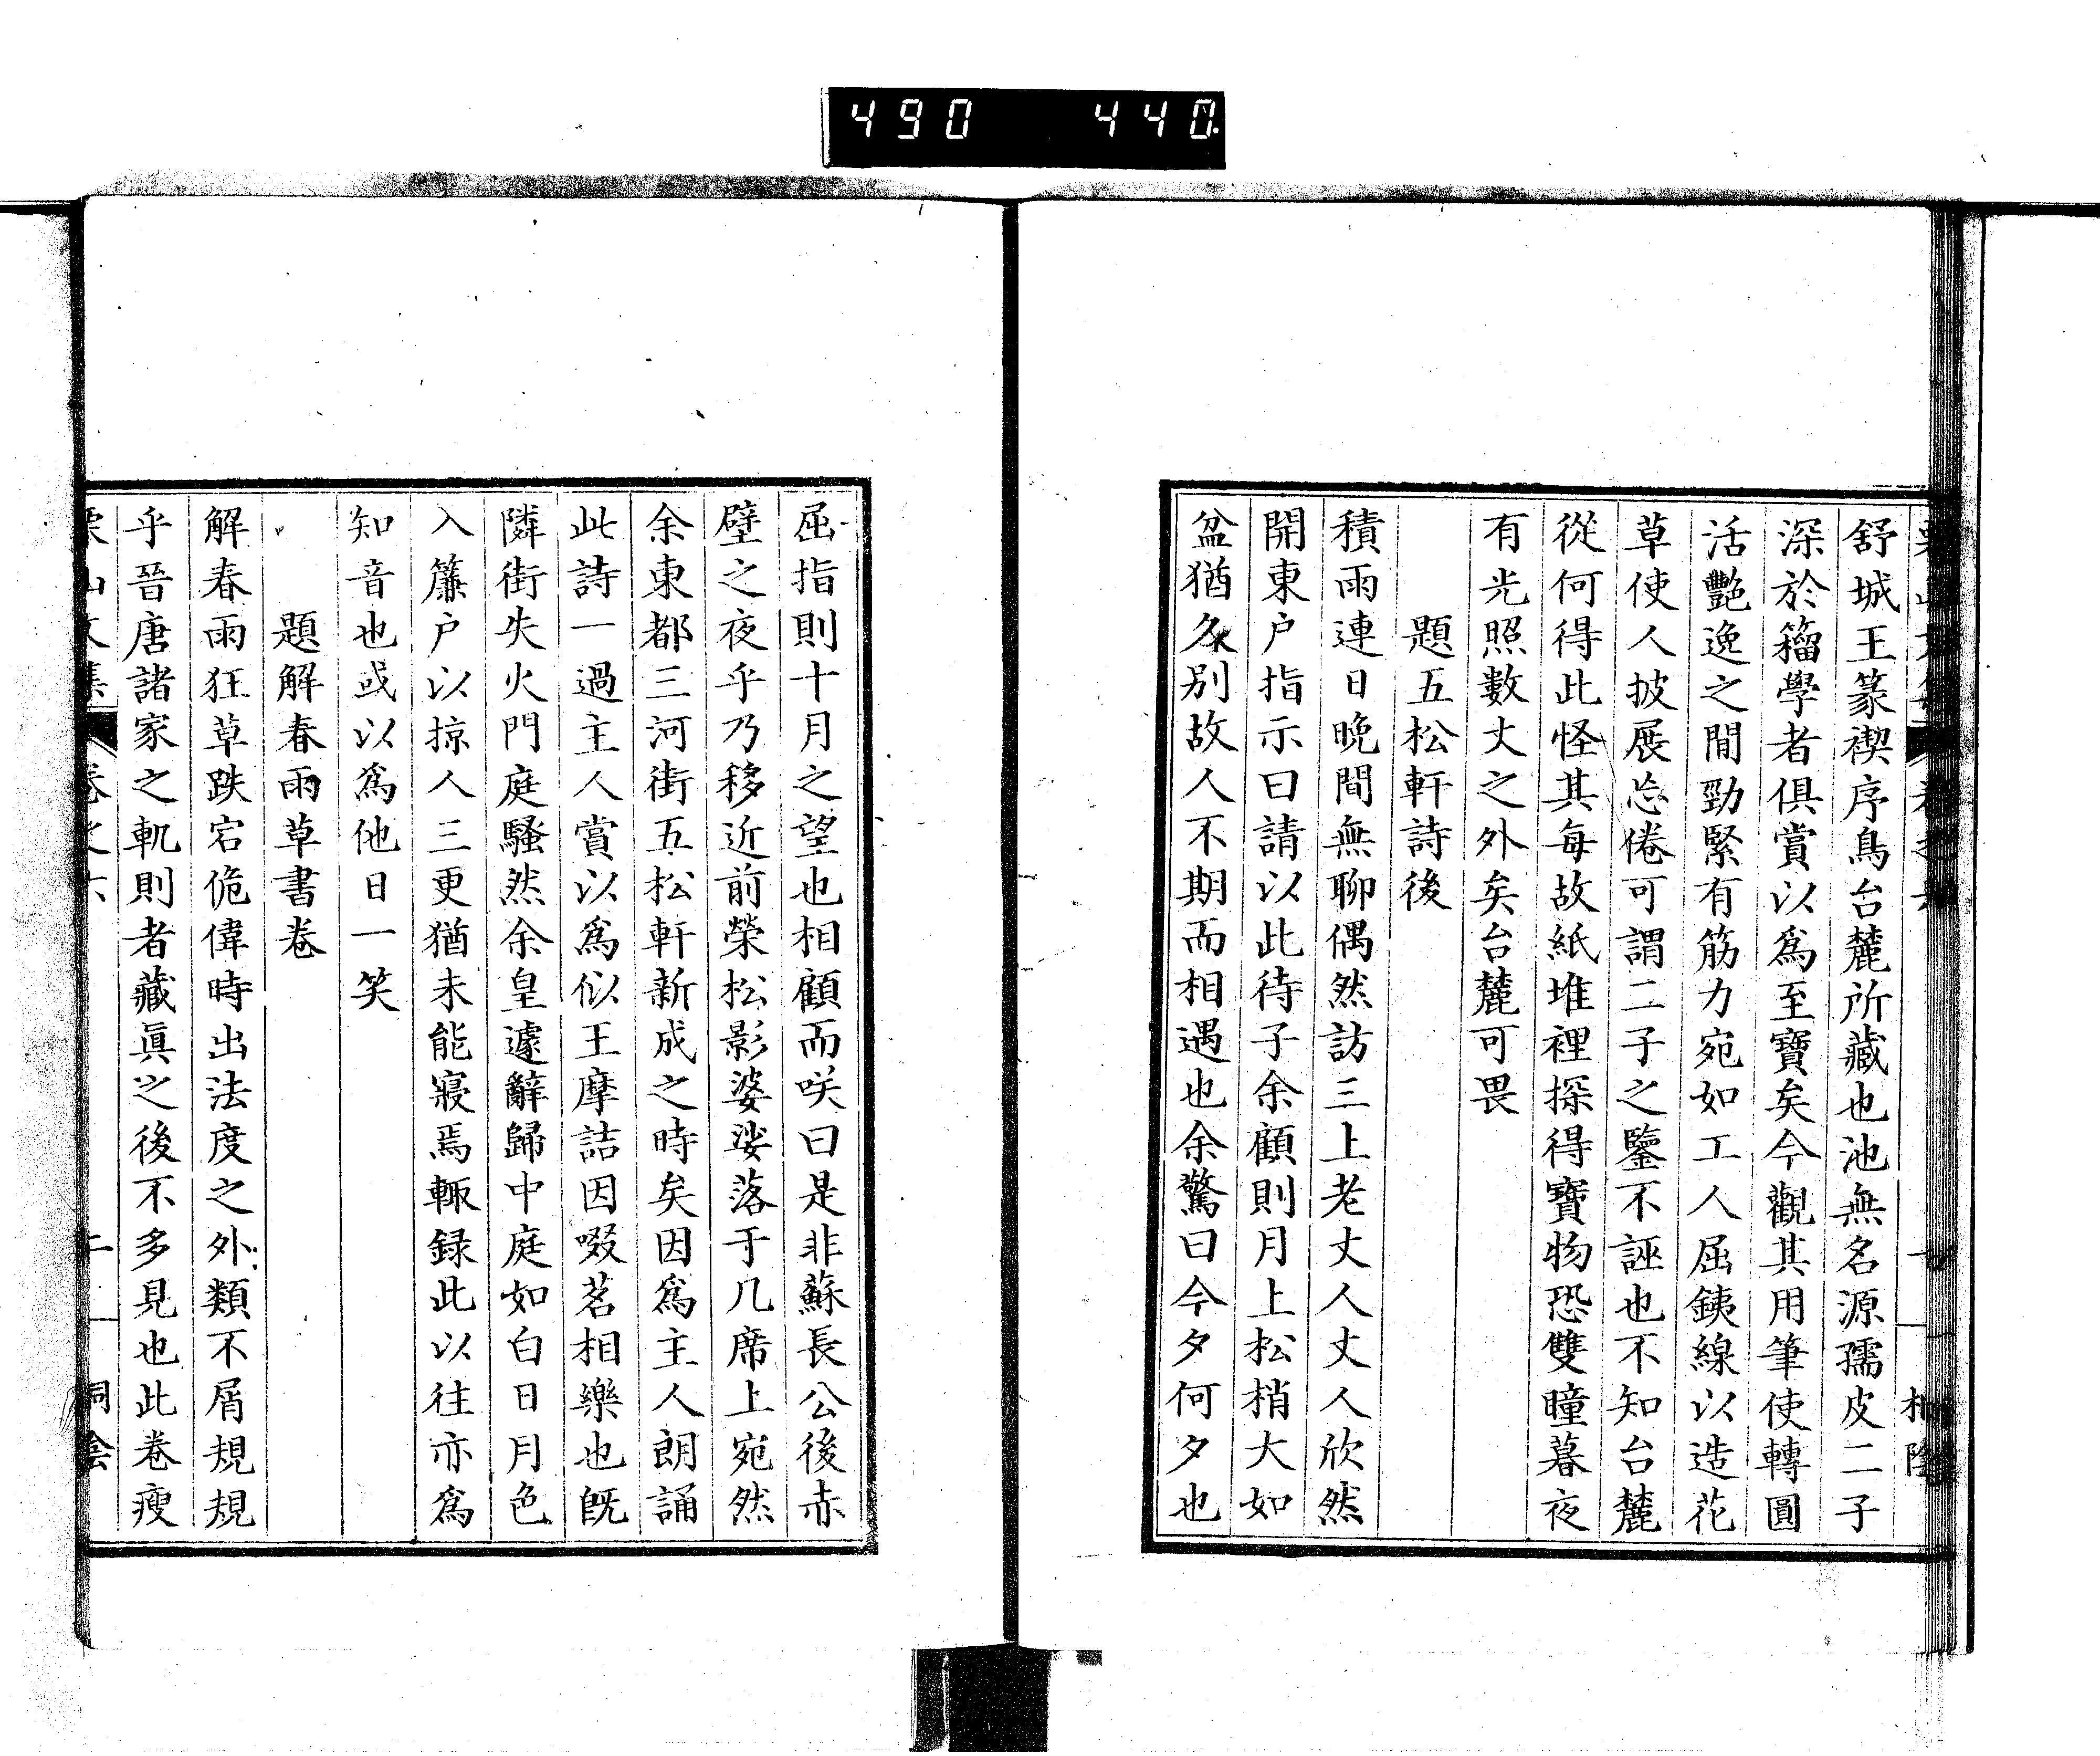 490 440
舒城王篆禊序鳥台麓所藏也池無名源孺皮二子
深於籀學者俱賞以爲至寶矣今觀其用筆使轉圓
活艷逸之間勁緊有筋力宛如工人屈銕線以造花
草使人披展忘倦可謂二子之鑒不誣也不知台麓
從何得此怪其每故紙堆裡探得寶物恐雙瞳暮夜
有光照數丈之外矣台麓可畏
題五松軒詩後
積雨連日晩間無聊偶然訪三上老丈人丈人欣然
開東户指示曰請以此待子余顧則月上松梢大如
盆猶久別故人不期而相遇也余驚曰今夕何夕也
屈指則十月之望也相顧而咲曰是非蘇長公後赤
壁之夜乎乃移近前榮松影婆娑落于几席上宛然
余東都三河街五松軒新成之時矣因爲主人朗誦
此詩一過主人賞以爲似王摩詰因啜茗相樂也既
隣街失火門庭騷然余皇遽辭歸中庭如白日月色
入簾户以掠人三更猶未能寢焉輙録此以往亦爲
知音也或以爲他日一笑
題解春雨草書卷
解春雨狂草跌宕佹偉時出法度之外類不屑規規
乎晉唐諸家之軌則者藏眞之後不多見也此卷瘦